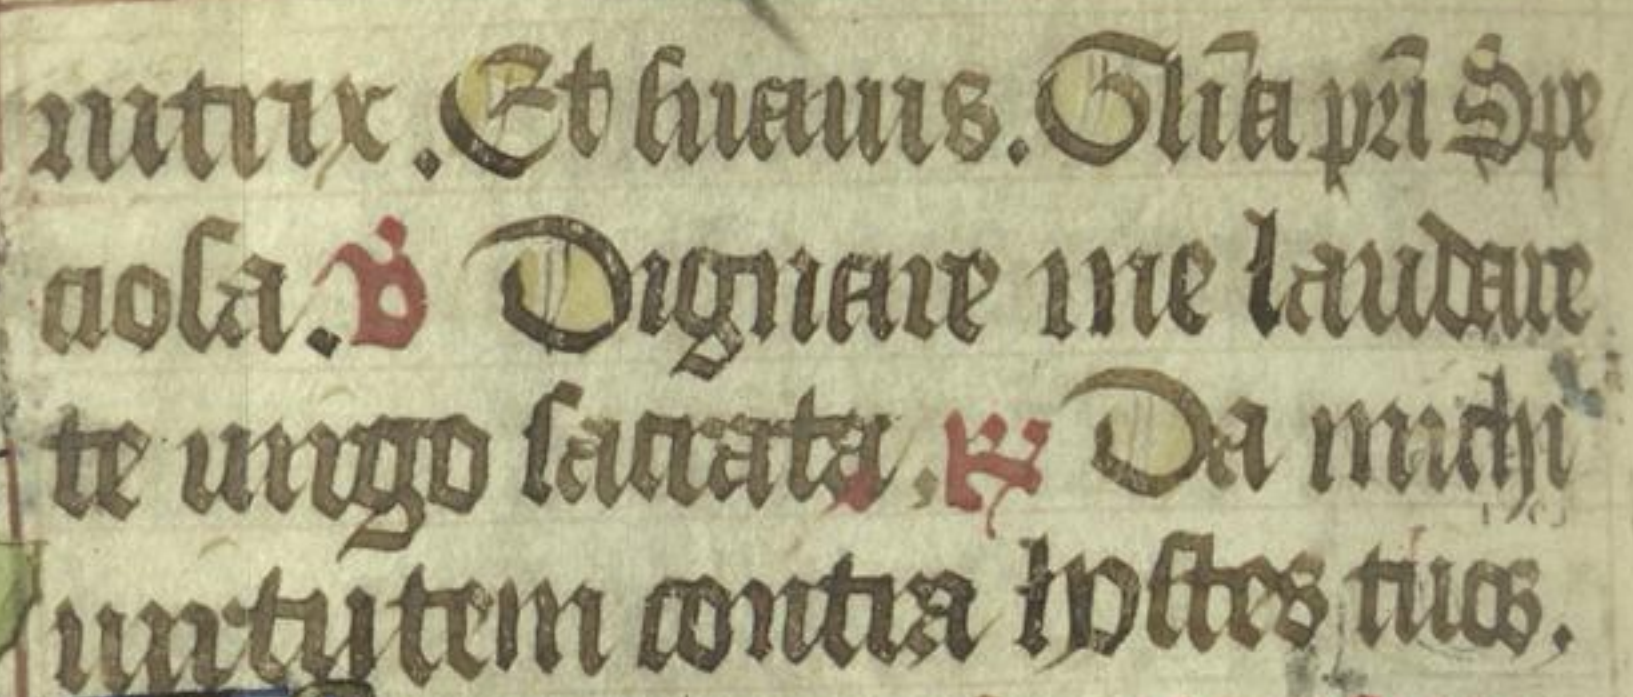 nutrix. Et suauis. Glīa pri̅ Spe
ciosa. V̇ Dignare me laudare
te uirgo sacrata. ℟ Da michi
uirtutem contra hostes tuos.